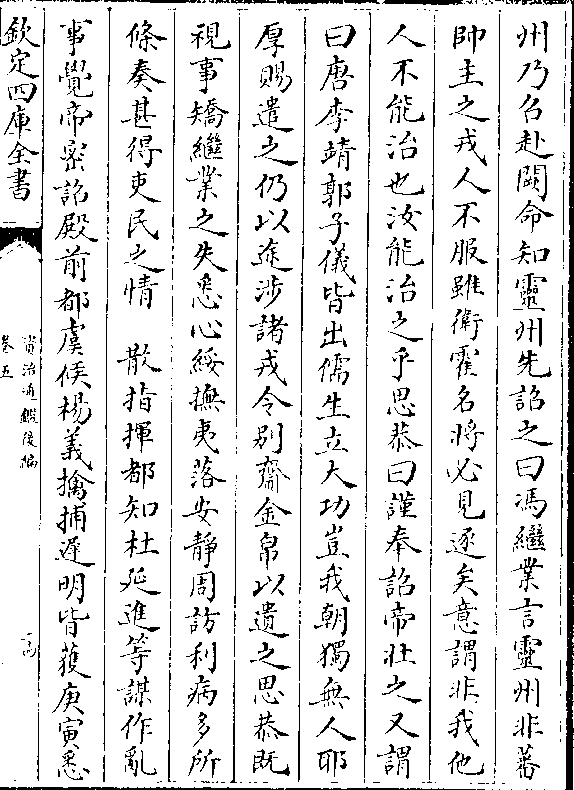 州乃召赴闕命知靈州先詔之曰馮繼業言靈州非蕃
帥主之戎人不服雖衛霍名將必見逐矣意謂非我他
人不能治也汝能治之乎思恭曰謹奉詔帝壯之又謂
曰唐李靖郭子儀皆出儒生立大功豈我朝獨無人耶
厚賜遣之仍以途涉諸戎令别齎金帛以遺之思恭既
視事矯繼業之失悉心綏撫夷落安靜周訪利病多所
條奏甚得吏民之情　散指揮都知杜延進等謀作亂
事覺帝宻詔殿前都虞候楊義擒捕遲明皆獲庚寅悉
欽定四庫全書
資治通鑑後編
卷五